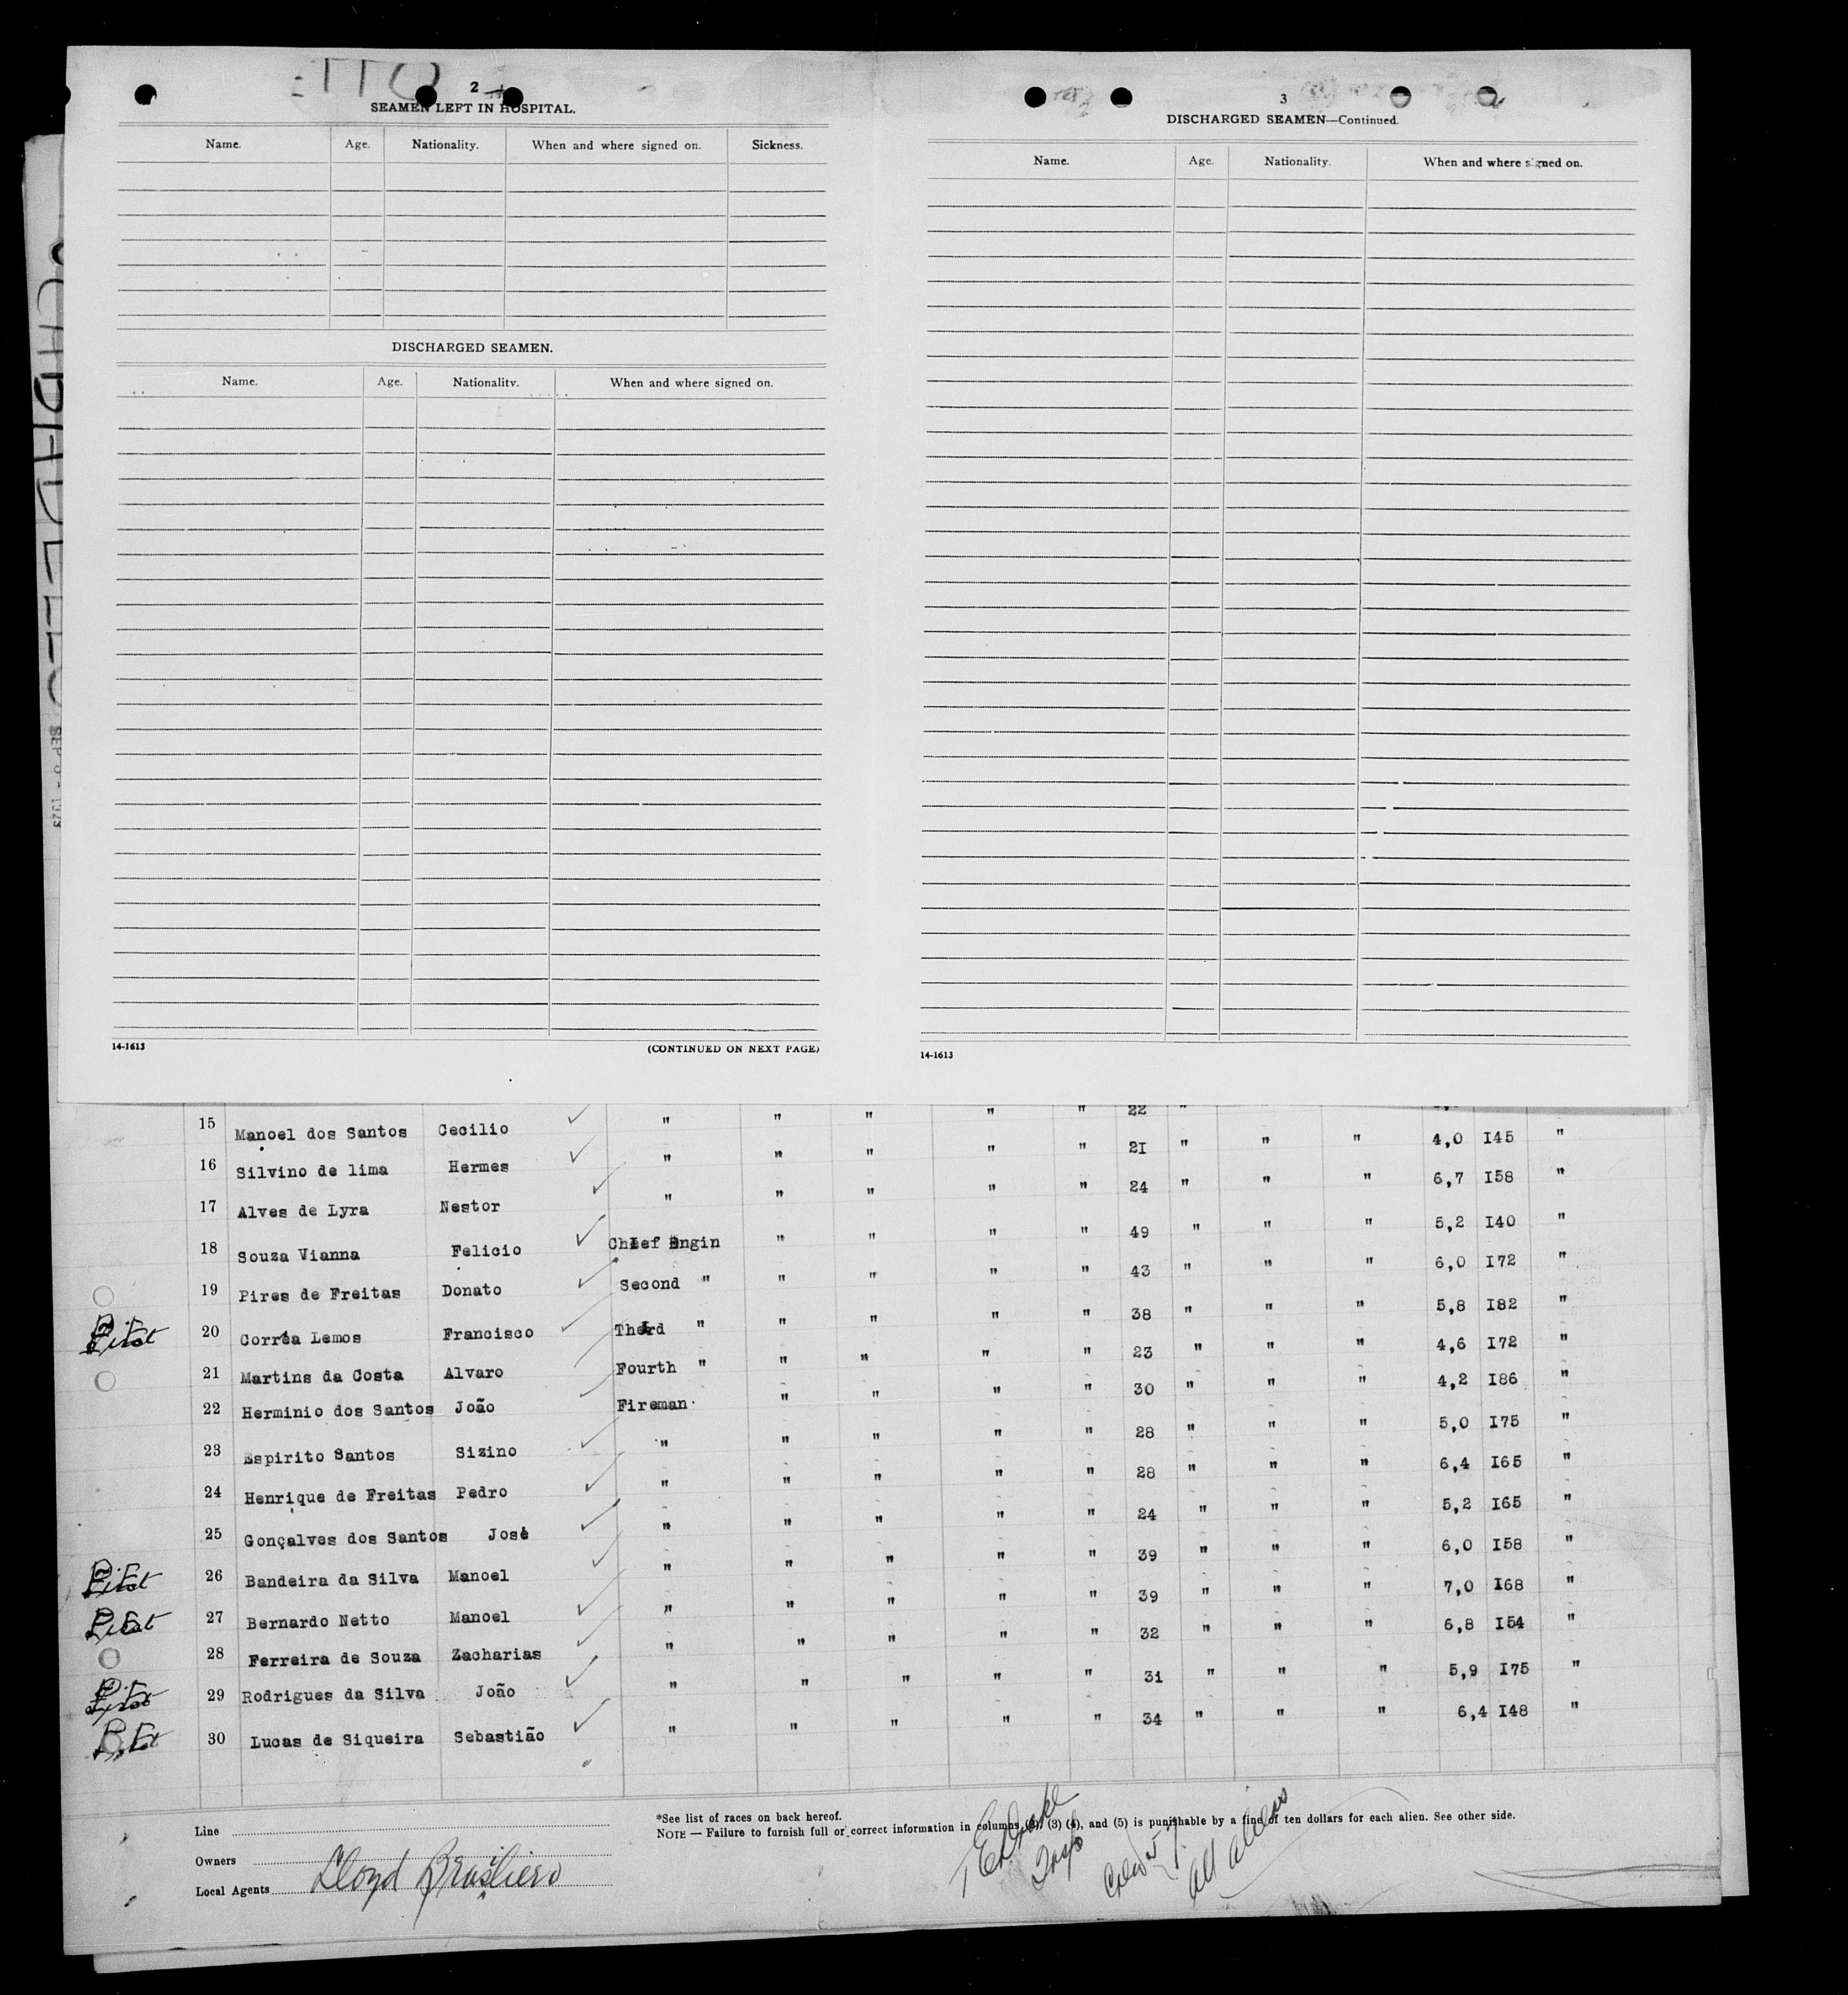 2
SEAMEN LEFT IN HOSPITAL.
Name. Age. Nationality. When and where signed on. Sickness.
DISCHARGED SEAMEN.
Name. Age. Nationality. When and where signed on.
14-1613 (CONTINUED ON NEXT PAGE)
3
DISCHARGED SEAMEN—Continued.
Name. Age. Nationality. When and where signed on.
14-1613
15 Manoel dos Santos Cecilio " " " " " 22 "
16 Silvino de lima Hermes " " " " " 21 " " " 4,0 I45 "
17 Alves de Lyra Nestor " " " " " 24 " " " 6,7 I58 "
18 Souza Vianna Felicio Chief Engin " " " " 49 " " " 5,2 I40 "
19 Pires de Freitas Donato Second " " " " " 43 " " " 6,0 I72 "
20 Corréa Lemos Francisco Third " " " " " 38 " " " 5,8 I82 "
21 Martins da Costa Alvaro Fourth " " " " " 23 " " " 4,6 I72 "
22 Herminio dos Santos João Fireman " " " " 30 " " " 4,2 I86 "
23 Espirito Santos Sizino " " " " " 28 " " " 5,0 I75 "
24 Henrique de Freitas Pedro " " " " " 28 " " " 6,4 I65 "
25 Gonçalves dos Santos José " " " " " 24 " " " 5,2 I65 "
26 Bandeira da Silva Manoel " " " " " 39 " " " 6,0 I58 "
27 Bernardo Netto Manoel " " " " " 39 " " " 7,0 I68 "
28 Ferreira de Souza Zacharias " " " " " 32 " " " 6,8 I54 "
29 Rodrigues da Silva João " " " " " 31 " " " 5,9 I75 "
30 Lucas de Siqueira Sebastião " " " " " 34 " " " 6,4 I48 "
*See list of races on back hereof.
NOTE — Failure to furnish full or correct information in columns (2), (3) (4), and (5) is punishable by a fine of ten dollars for each alien. See other side.
Line
Owners
Local Agents Lloyd Brasliero
All aliens